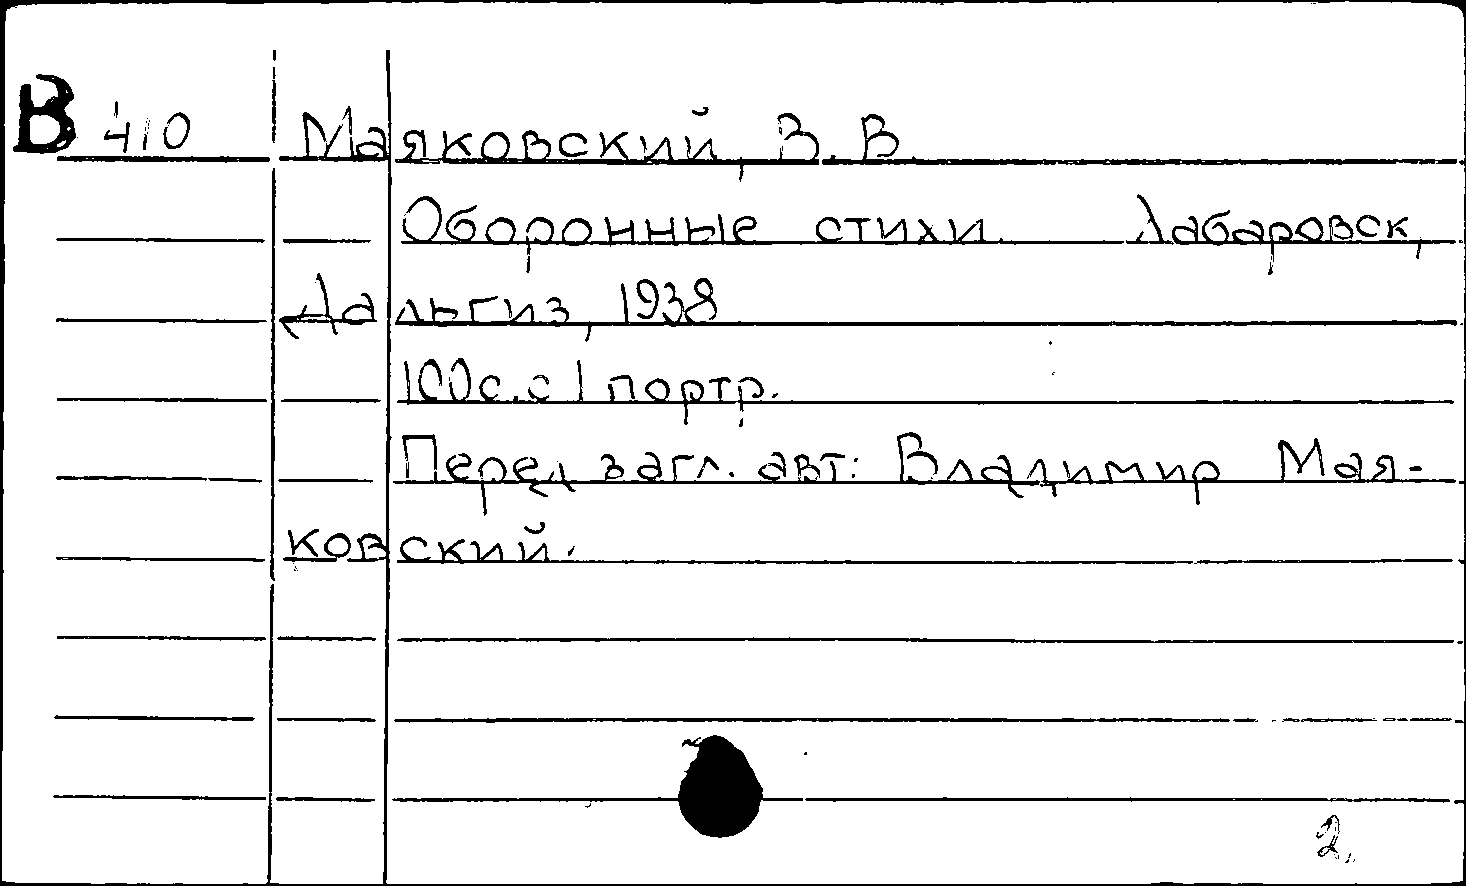 В 410 Маяковский, В. В.
Оборонные стихи. Хабаровск,
Дальгиз, 1938
100с. с 1 портр.
Перед загл. авт: Владимир Мая-
ковский.
2.